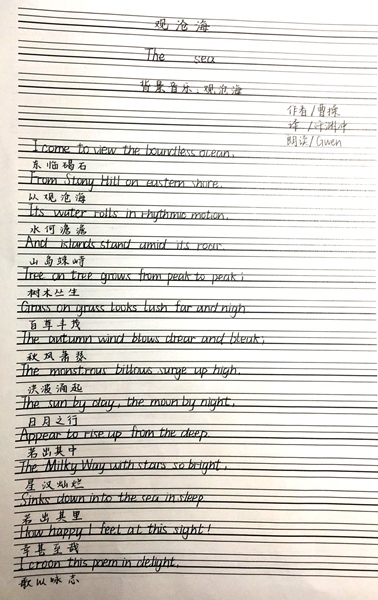 观沧海
The sea
背景音乐：观沧海
作者/曹操
译/许渊冲
朗读/Gwen
I come to view the boundless ocean,
东临碣石
From Stony Hill on eastern shore.
以观沧海
Its water rolls in rhythmic motion,
水何澹澹
And islands stand amid its roar.
山岛竦峙
Tree on tree grows from peak to peak;
树木丛生
Grass on grass looks lush far and nigh.
百草丰茂
The autumn wind blows drear and bleak;
秋风萧瑟
The monstrous billows surge up high.
洪波涌起
The sun by day, the moon by night,
日月之行
Appear to rise up from the deep.
若出其中
The Milky Way with stars so bright,
星汉灿烂
Sinks down into the sea in sleep.
若出其里
How happy I feel at this sight!
幸甚至哉
I croon this poem in delight.
歌以咏志